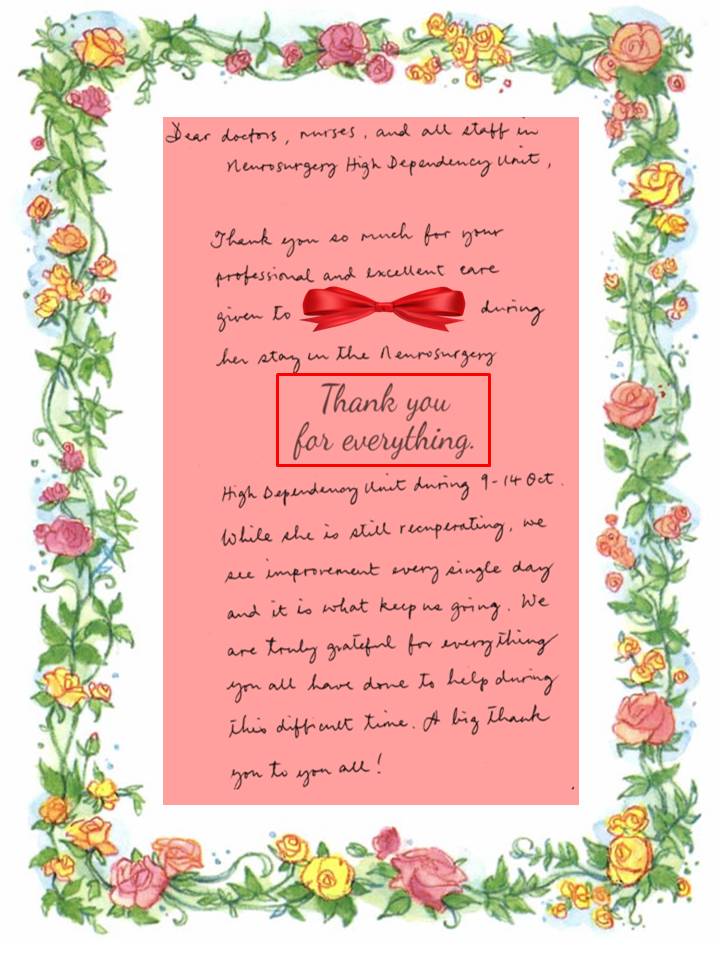 Dear doctors, nurses, and all staff in
Neurosurgery High Dependency Unit,
Thank you so much for your
professional and excellent care
given to during
her stay in the Neurosurgery
Thank you
for everything.
High Dependency Unit during 9-14 Oct.
While she is still recuperating, we
see improvement every single day
and it is what keep us going. We
are truly grateful for everything
you all have done to help during
this difficult time. A big thank
you to you all!